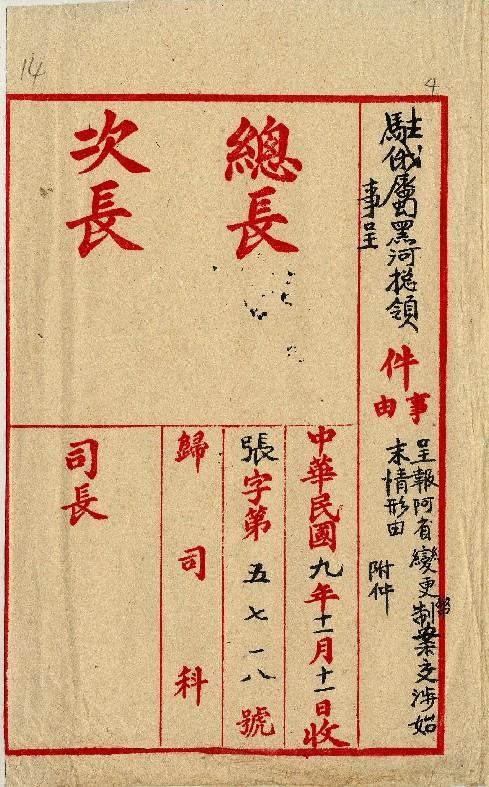 14
4
駐俄屬黑河總領
事呈
件
事由
呈報阿省變更幣制案交涉始
末情形由
附件
總長
次長
中華民國九年十一月十一日收
張字第五七一八號
歸司科
司長